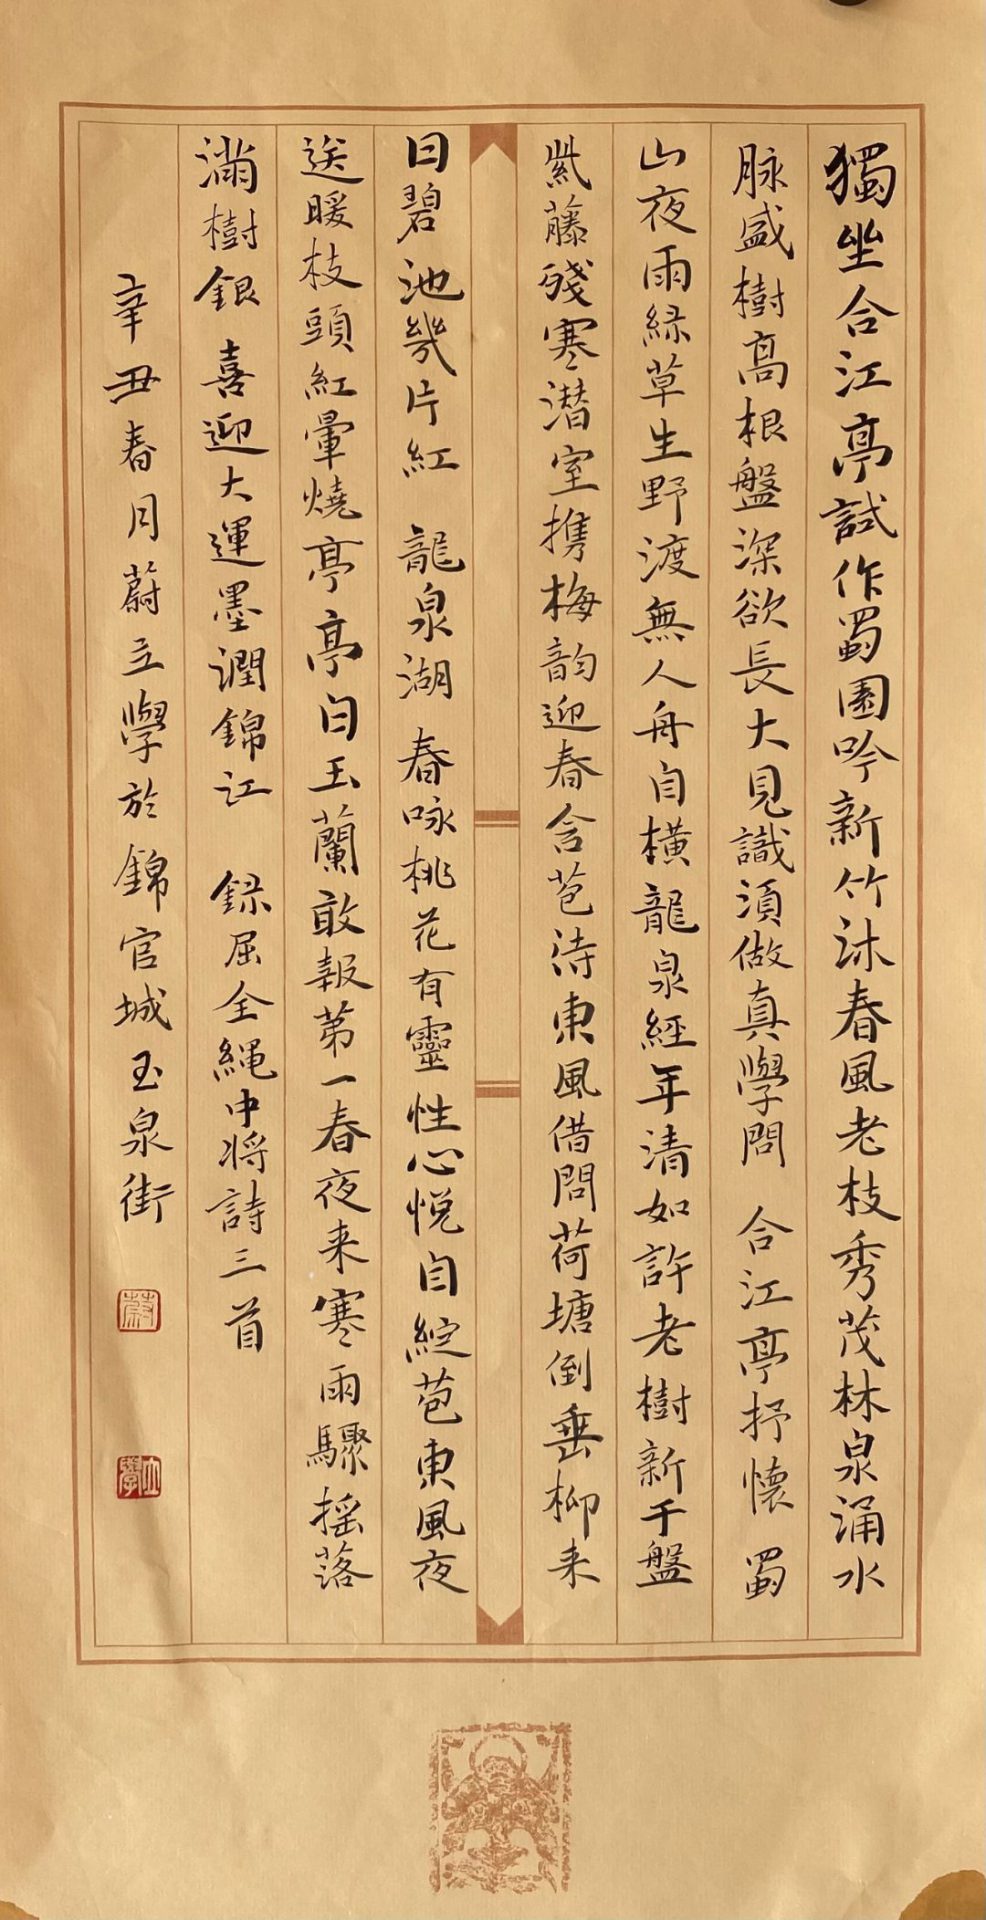 獨坐合江亭試作蜀園吟新竹沐春風老枝秀茂林泉涌水
脉盛樹高根盤深欲長大見識須做真學問 合江亭抒懷 蜀
山夜雨綠草生野渡無人舟自橫龍泉經年清如許老樹新干盤
紫藤殘寒潛室攜梅韵迎春含苞待東風借問荷塘倒垂柳来
日碧池幾片紅 龍泉湖春咏桃花有靈性心悦自綻苞東風夜
送暖枝頭紅暈燒亭亭白玉蘭敢報第一春夜来寒雨驟搖落
滿樹銀 喜迎大運墨潤錦江 録屈全繩中将詩三首
辛丑春月蔚立學於錦官城玉泉街
蔚
立學